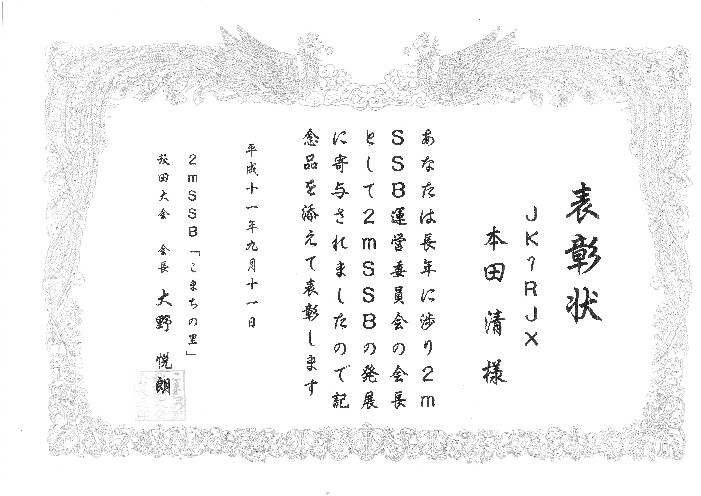 表彰状
JK1RJX
本田 清 様
あなたは長年に渉り2m
SSB運営委員会の会長
として2mSSBの発展
に寄与されましたので記
念品を添えて表彰します
平成十一年九月十一日
2mSSB「こまちの里」
秋田大会 会長 大野 悦朗